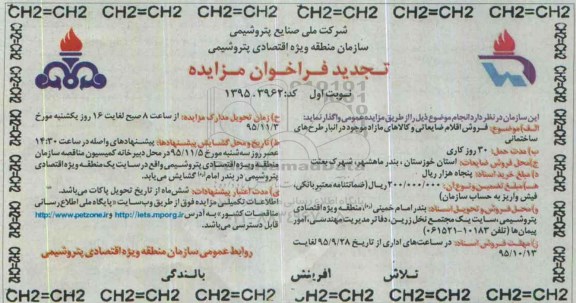 CH2=CH2 CH2=CH2 CH2=CH2 CH2=CH2 CH2=CH2 CH2=CH2
شرکت ملی صنایع پتروشیمی
سازمان منطقه ویژه اقتصادی پتروشیمی
تجدید فراخوان مزایده
نوبت اول کد: ۱۳۹۵.۳۹۶۲
این سازمان در نظر دارد انجام موضوع ذیل را از طریق مزایده عمومی واگذار نماید:
الف) موضوع: فروش اقلام ضایعاتی و کالاهای مازاد موجود در انبار طرح‌های
ساختمانی
ب) مدت عمل: ۳۰ روز کاری
ج) محل فروش ضایعات: استان خوزستان، بندر ماهشهر، شهرک بعثت
د) مبلغ خرید اسناد: پنجاه هزار ریال
هـ) مبلغ تضمین و نوع آن: ۲۰۰/۰۰۰/۰۰۰ ریال (ضمانتنامه معتبر بانکی،
فیش واریز به حساب سازمان)
و) محل فروش و تحویل اسناد: بندر امام خمینی (ره)، منطقه ویژه اقتصادی
پتروشیمی، سایت یک، مجتمع نخل زرین، دفاتر مدیریت مهندسی، امور
پیمان‌ها (تلفن ۱۰۱۸۳-۰۶۱۵۲۱)
ز) مهلت فروش اسناد: در ساعت‌های اداری از تاریخ ۹۵/۹/۲۸ لغایت
۹۵/۱۰/۱۳
ح) زمان تحویل مدارک مزایده: از ساعت ۸ صبح لغایت ۱۶ روز یکشنبه مورخ
۹۵/۱۱/۳
ط) تاریخ و محل گشایش پیشنهادها: پیشنهادهای واصله در ساعت ۱۴:۳۰
عصر روز سه‌شنبه مورخ ۹۵/۱۱/۵ در محل دبیرخانه کمیسیون مناقصه سازمان
منطقه ویژه اقتصادی پتروشیمی واقع در سایت یک منطقه ویژه اقتصادی
پتروشیمی در بندر امام (ره) گشایش می یابد.
ی) مدت اعتبار پیشنهادات: شش‌ماه از تاریخ تحویل پاکات می‌باشد.
اطلاعات تکمیلی مزایده فوق از طریق وب‌سایت «پایگاه ملی اطلاع‌رسانی
مناقصات کشور» به آدرس http://iets.mporg.ir و http://www.petzone.ir
قابل دسترسی می‌باشد.
روابط عمومی سازمان منطقه ویژه اقتصادی پتروشیمی
تلاش آفرینش بالندگی
CH2=CH2 CH2=CH2 CH2=CH2 CH2=CH2 CH2=CH2 CH2=CH2